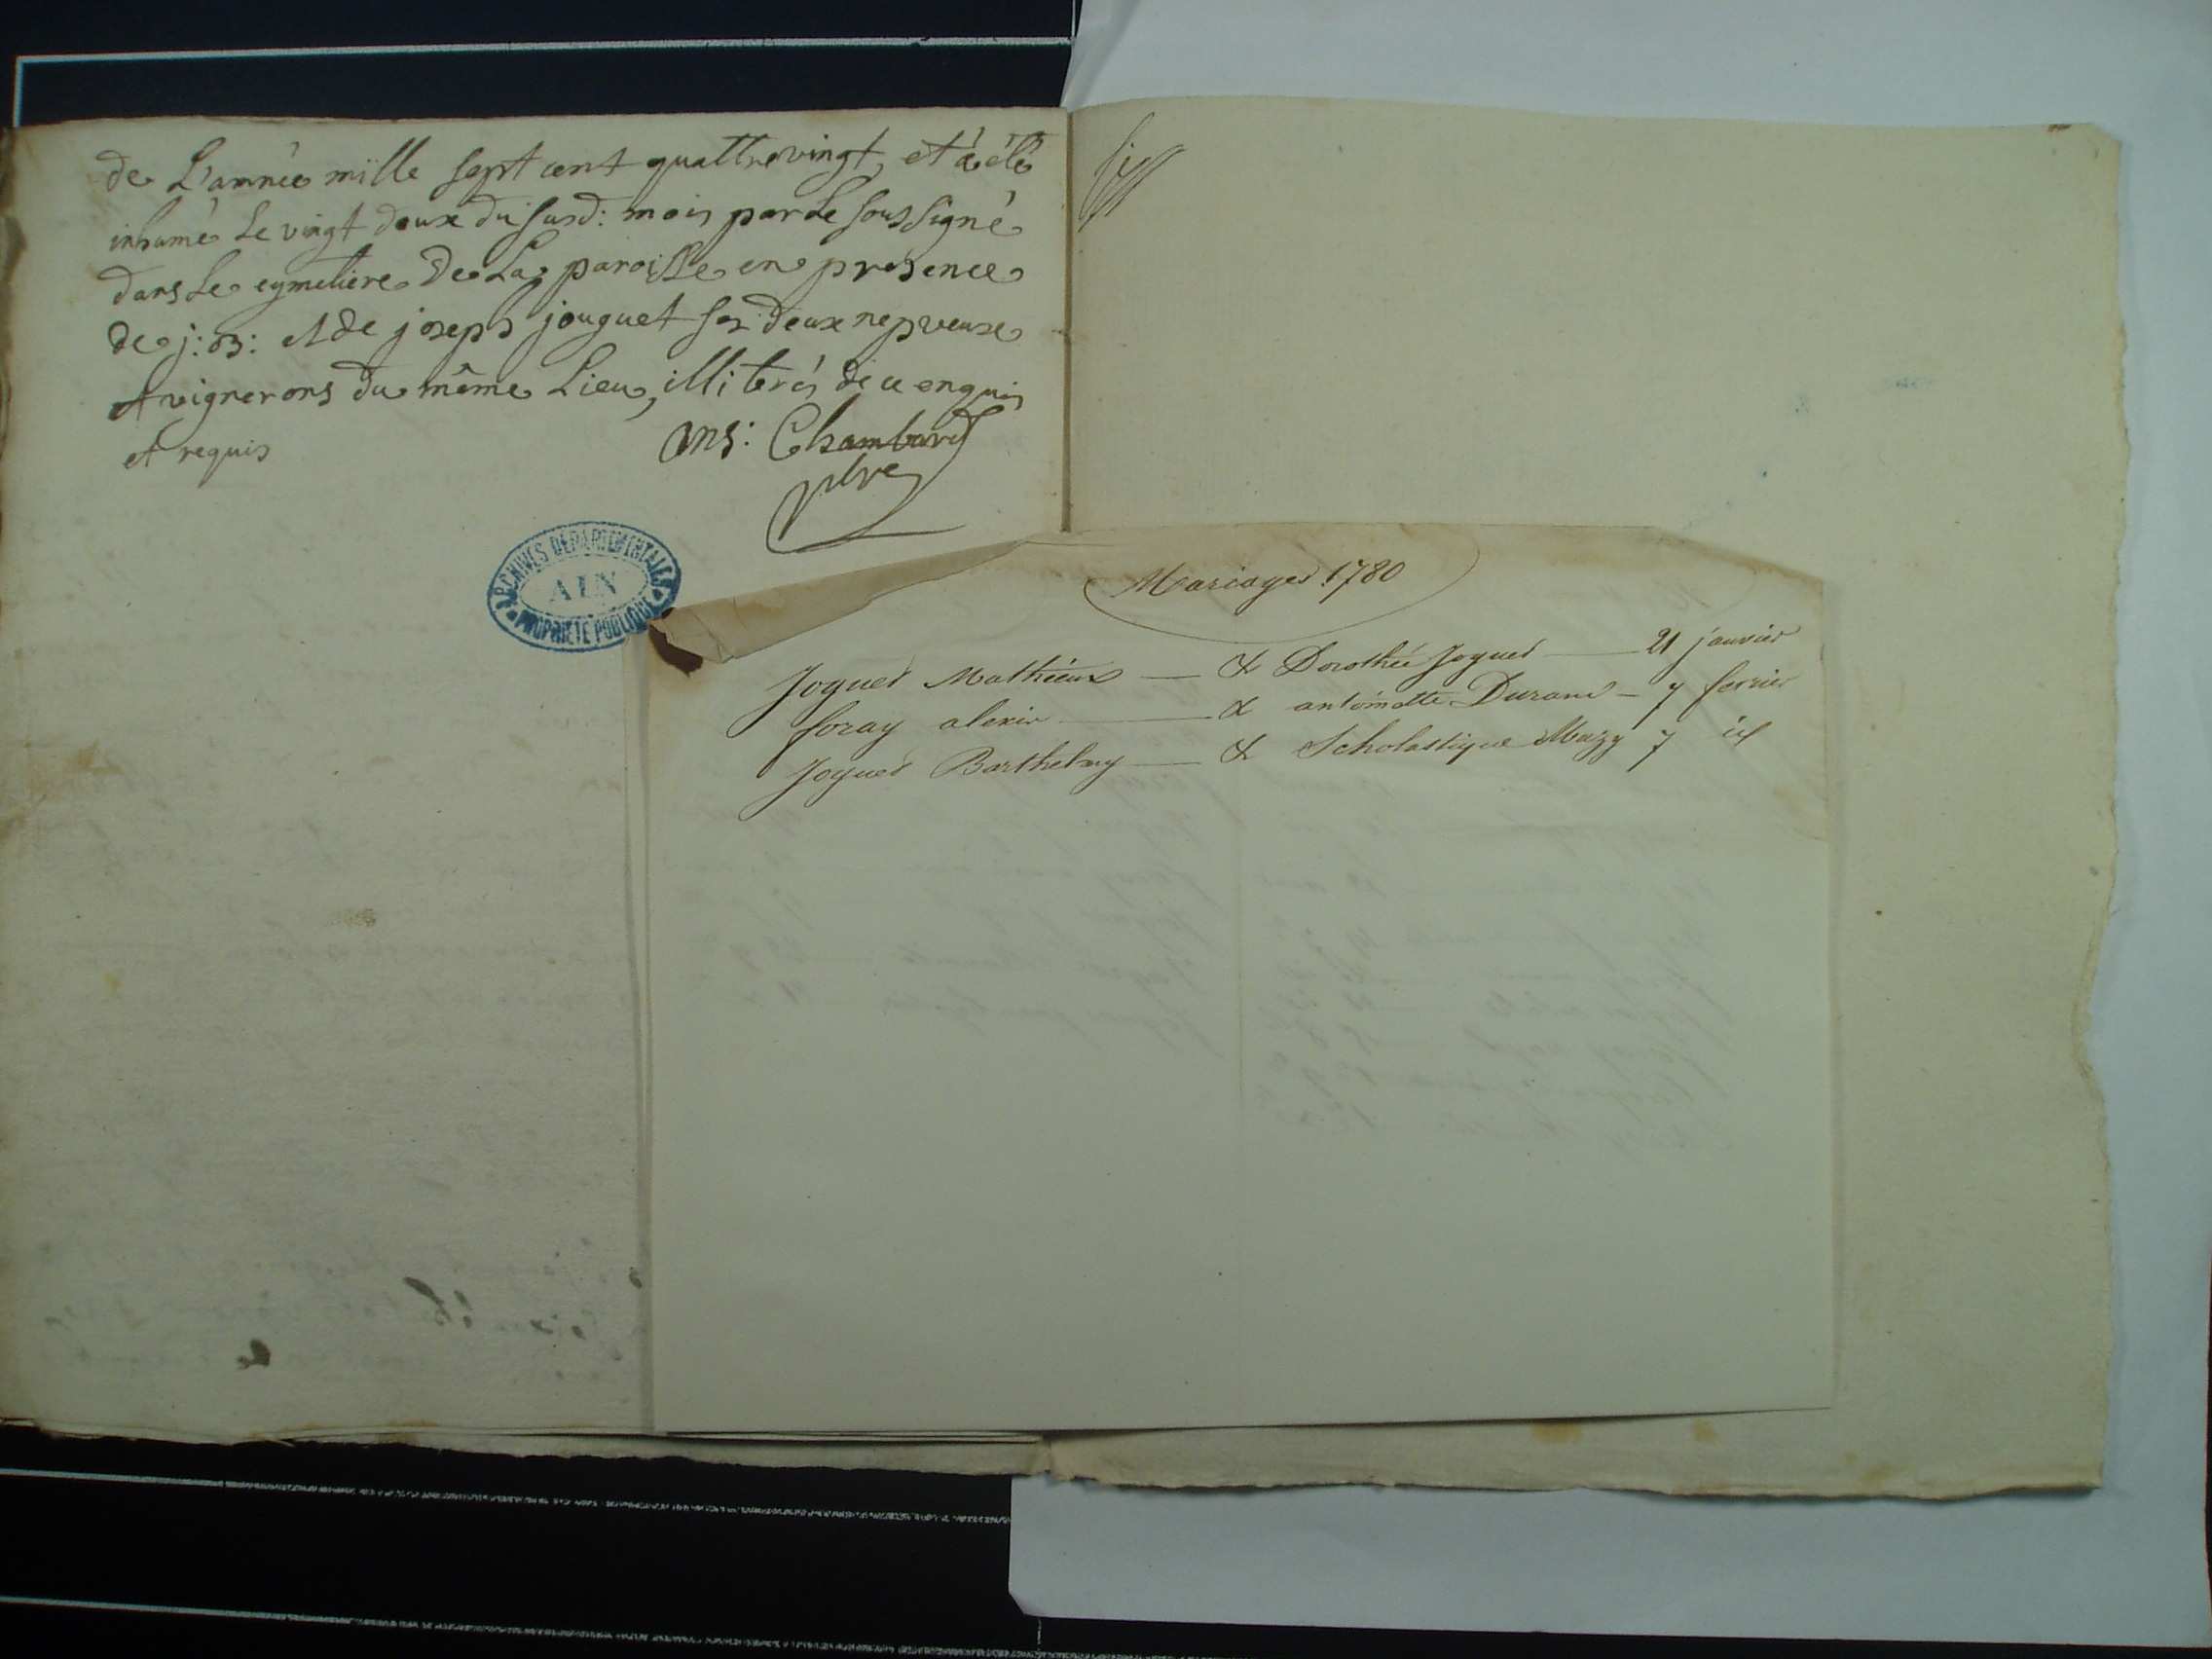 de L'année mille sept cent quattrevingt, et à été
inhumé Le vingt deux du susd: mois par Le soussigné
dans Le cymetière De La paroisse en presence
de j: B: et de joseph jouguet ses deux nepveuse
et vignerons du même Lieu, illiterés de ce enquis
et requis
Chambard
ptre
ARCHIVES DEPARTEMENTALES
AIN
PROPRIETE PUBLIQUE
Mariages 1780
Joguet Mathieux — & Dorothée Joguet — 21 janvier
foray alexis — & antoinette Durand — 7 fevrier
Joguet Barthelmy — & Scholastique Mazy 7 id